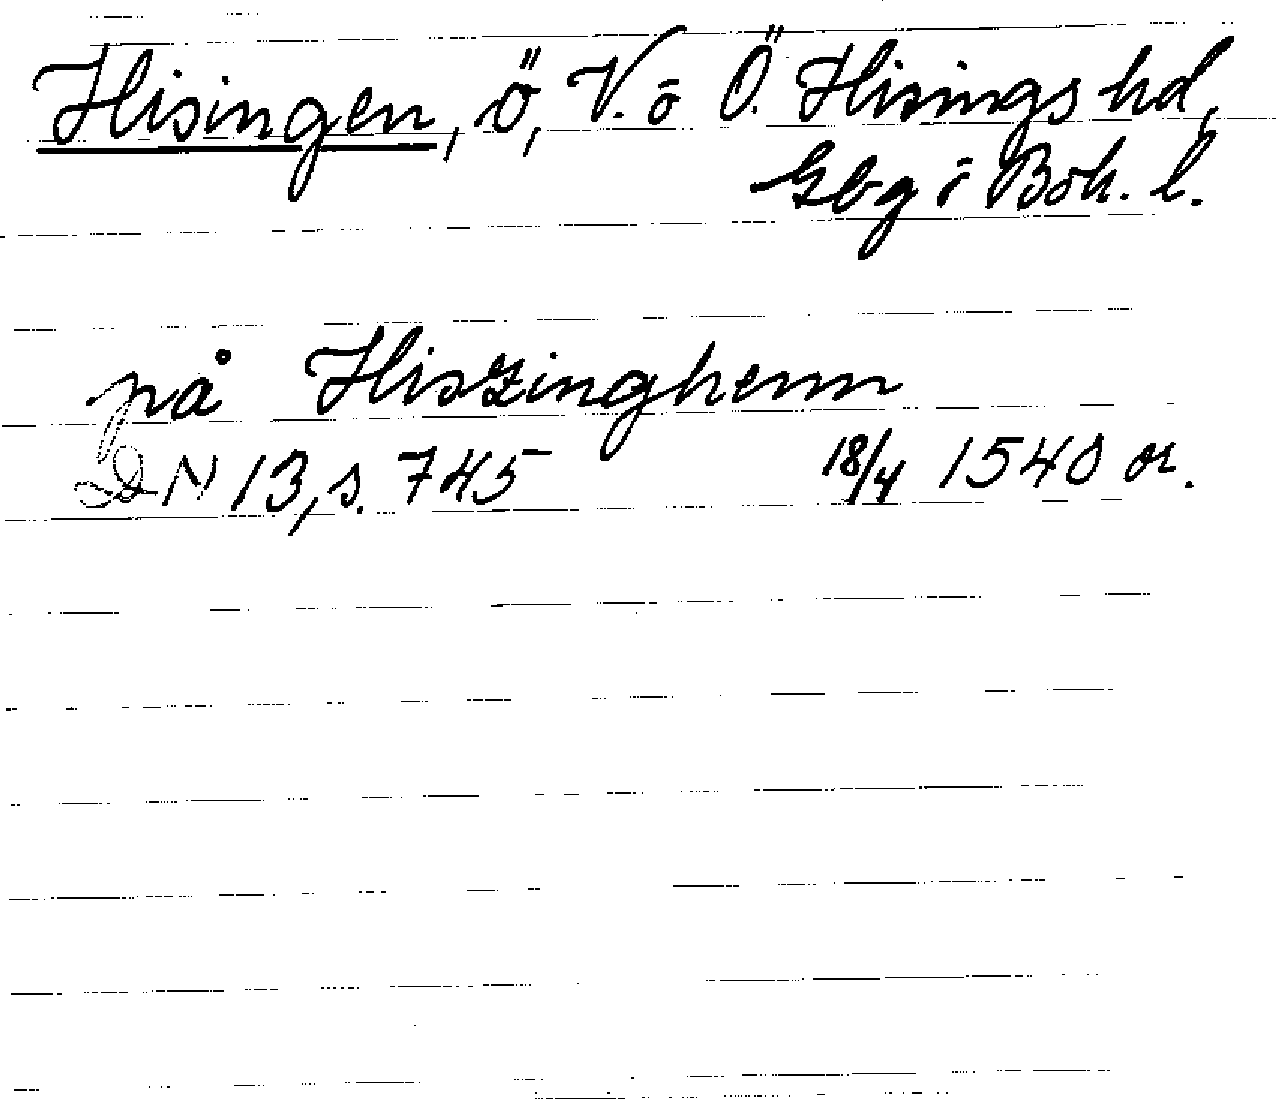 Hisingen, ö, V. o Ö. Hisings hd,
Gbg o Boh. l.
på Hiszinghenn
DN 13, s. 745 18/4 1540 or.